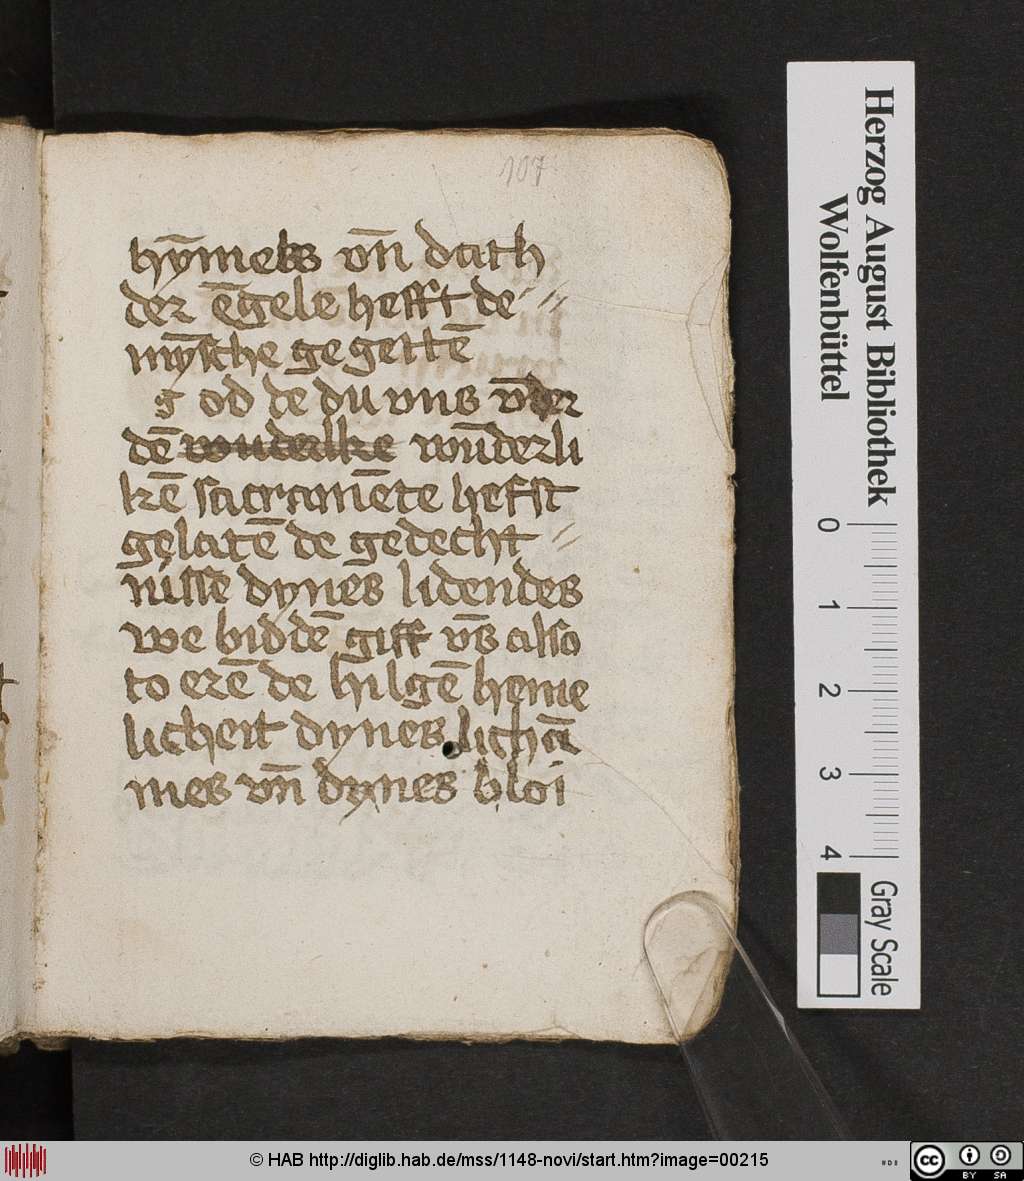 107
hȳmels vn̄ dath
der ēgele hefft de
mȳsche gegettē
g od de du vns vn̄der
dē wuderlke wūderli
kē sacramēte hefst
gelatē de gedecht
nisse dynes lidendes
we biddē giff vn̄s also
to erē de hilgē heme
licheit dynes lichā
mes vn̄ dynes bloi
Herzog August Bibliothek
Wolfenbüttel
0 1 2 3 4
Gray Scale
© HAB http://diglib.hab.de/mss/1148-novi/start.htm?image=00215
cc BY SA